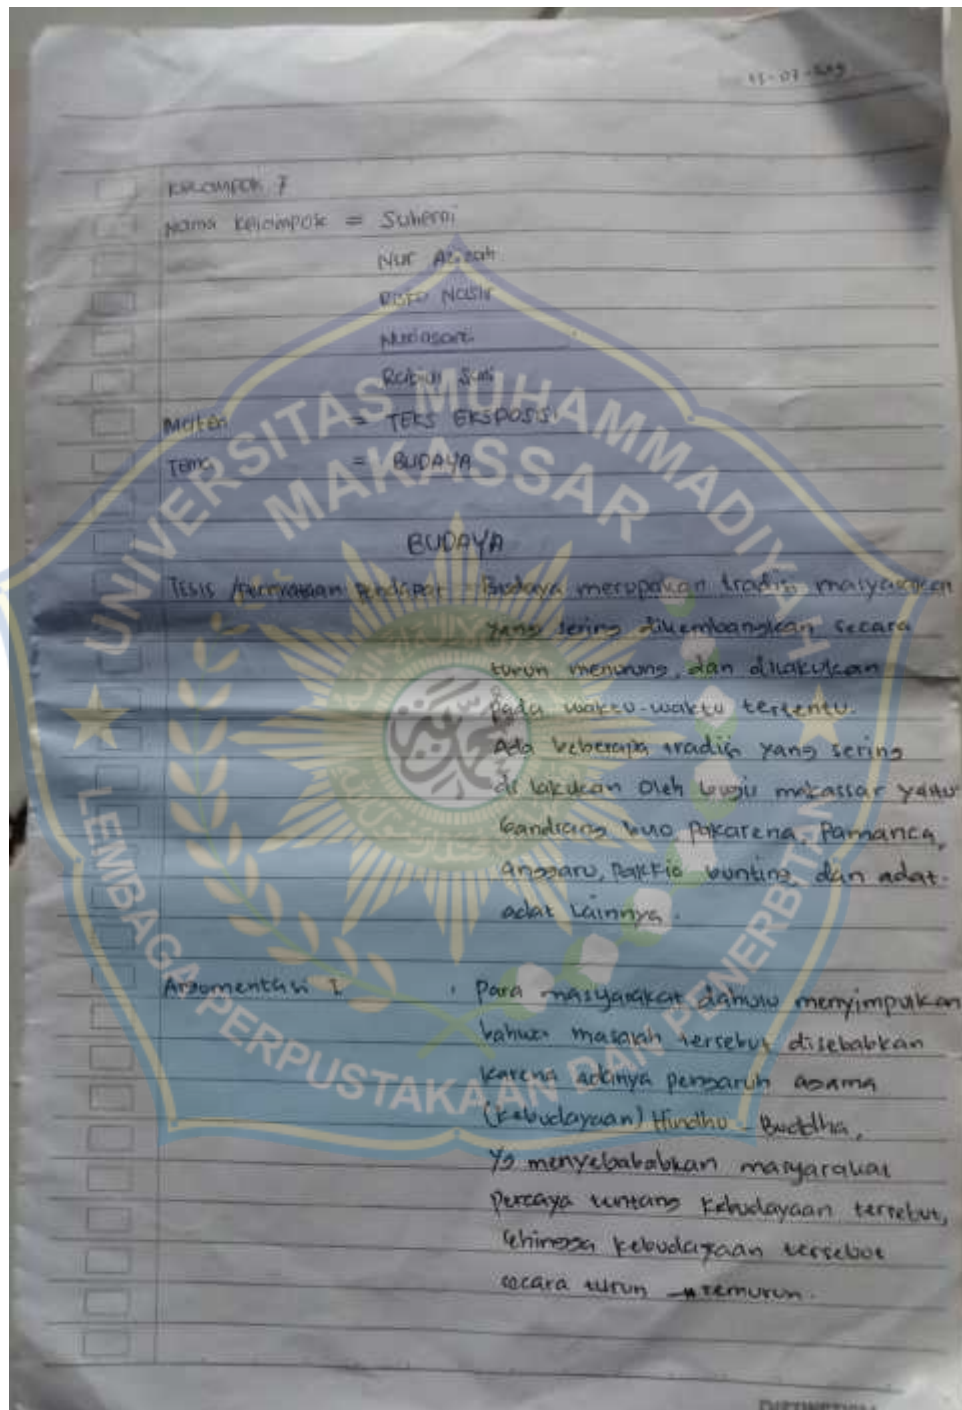 KELOMPOK 7
Nama Kelompok = Suherni
Nur Azizah
Nasir
Materi = TEKS EKSPOSISI
Tema = BUDAYA
BUDAYA
Tesis / pernyataan pendapat = Budaya merupakan tradisi masyarakan
yang sering dikembangkan secara
turun menurung, dan dilakukan
pada waktu-waktu tertentu.
Ada beberapa tradisi yang sering
di lakukan oleh bugis makassar yaitu
Gandrang bulo Pakarena, Pamanca,
angngaru, Pakkio bunting dan adat-
adat lainnya.
Argomentasi I : Para masyarakat dahulu menyimpulkan
bahwa masalah tersebut disebabkan
karena adanya pengaruh agama
(Kebudayaan) Hindhu - Buddha,
Yg menyebababkan masyarakat
percaya tentang kebudayaan tersebut,
sehingga kebudayaan tersebut
secara turun - temurun.
UNIVERSITAS MUHAMMADIYAH
MAKASSAR
LEMBAGA PERPUSTAKAAN DAN PENERBITAN